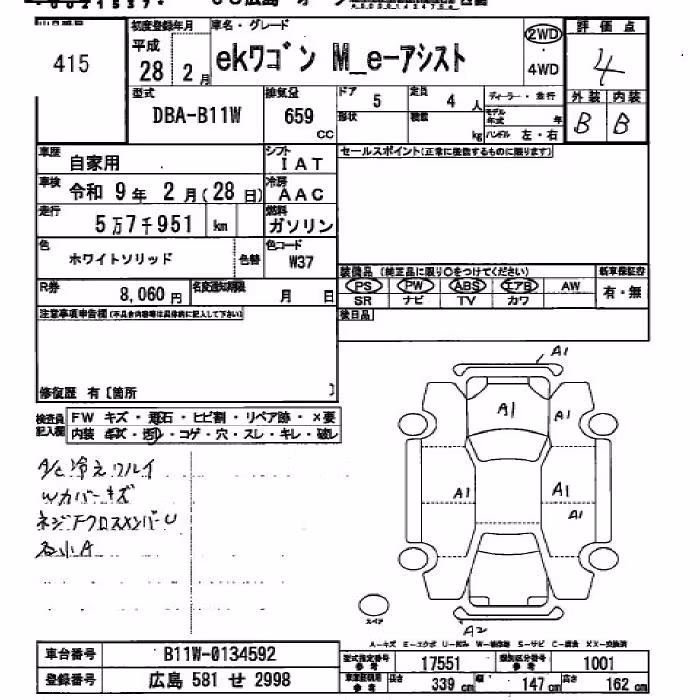 初度登録年月 車名・グレード 2WD 評価点
415 平成 28 2月 ekワゴン M_e-アシスト 4WD 4
型式 排気量 ドア 定員 ディーラー・並行 外装 内装
DBA-B11W 659 cc 5 4人 モデル年式 年 B B
形状 積載 kg ハンドル 左・右
車歴 自家用 シフト IAT セールスポイント(正常に機能するものに限ります)
車検 令和 9年 2月(28日) 冷房 AAC
走行 5万7千951 km 燃料 ガソリン
色 ホワイトソリッド 色替 色コード W37
装備品 (純正品に限り○をつけてください) 新車保証書
R券 8,060円 名変通知期限 月 日 PS PW ABS エアB AW 有・無
SR ナビ TV カワ
注意事項申告欄(不具合内容等は具体的に記入して下さい) 後日品
修復歴 有〔箇所 〕
検査員記入欄 FW キズ・飛石・ヒビ割・リペア跡・×要
内装 キズ・汚レ・コゲ・穴・スレ・キレ・破レ
A/C冷えワルイ
Wカバーキズ
ネジ下クロスメンバーU
石小A
A1
A1
A1
A1
A1
A1
A2
スペア
A-キズ E-エクボ U-凹み W-補修跡 S-サビ C-腐食 XX-交換済
車台番号 B11W-0134592 型式指定番号 参考 17551 類別区分番号 参考 1001
登録番号 広島 581 せ 2998 参考 長さ 339 cm 幅 147 cm 高さ 162 cm